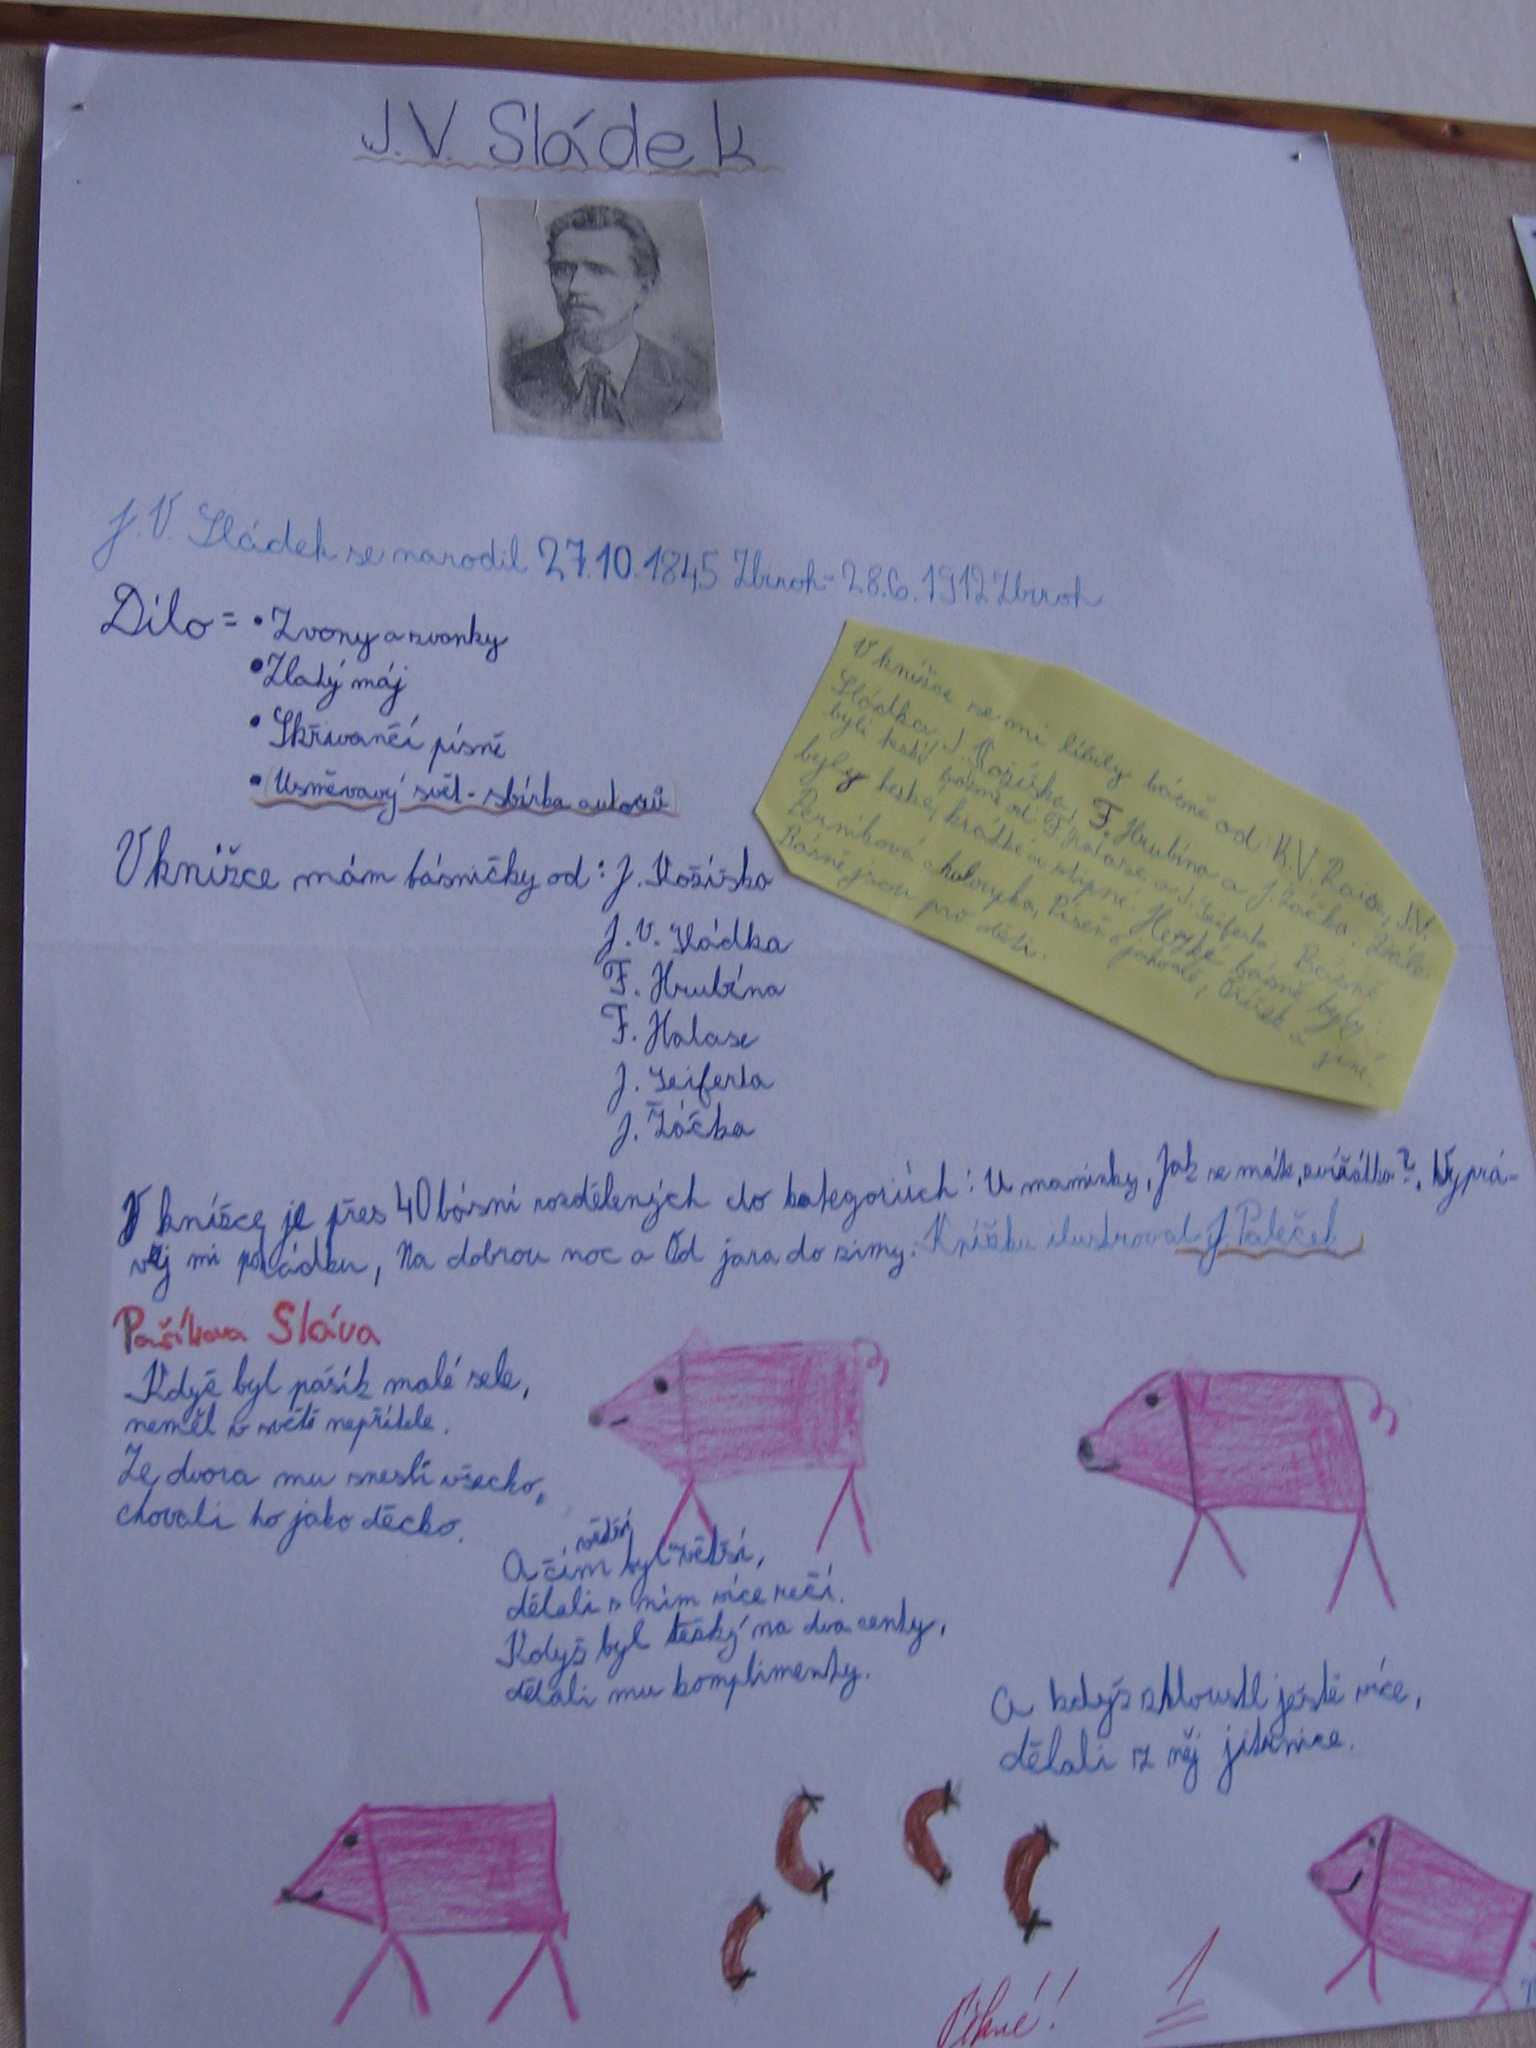 J.V. Sládek
J.V. Sládek se narodil 27.10.1845 Zbiroh - 28.6.1912 Zbiroh
Dílo = • Zvony a zvonky
• Zlatý máj
• Skřivančí písně
• Usměvavý svět - sbírka autorů
V knížce se mi líbily básně od: K.V. Raise, J.V.
Sládka, J. Kožíška, F. Hrubína a J. Žáčka. Dále
byli hezké básně od: F. Halase, a J. Seiferta. Básně
byly hezké, krátké a vtipné. Hezké básně byly:
Perníková chaloupka, Píseň o jahodě, a jiné.
Básně jsou pro děti.
V knížce mám básničky od: J. Kožíška
J.V. Sládka
F. Hrubína
F. Halase
J. Seiferta
J. Žáčka
V knížce je přes 40 básní rozdělených do kategoriích: U maminky, Jak se máte, zvířátka?, Vyprá-
věj mi pohádku, Na dobrou noc a Od jara do zimy. Knížku ilustroval J. Paleček
Pašíkova Sláva
Když byl pašík malé sele,
neměl v světě nepřítele.
Ze dvora mu snesli všecko,
chovali ho jako děcko.
větší
A čím byl větší,
dělali s ním více řečí.
Když byl těžký na dva centy,
dělali mu komplimenty.
A když ztloustl ještě více,
dělali z něj jitrnice.
Pěkné! 1